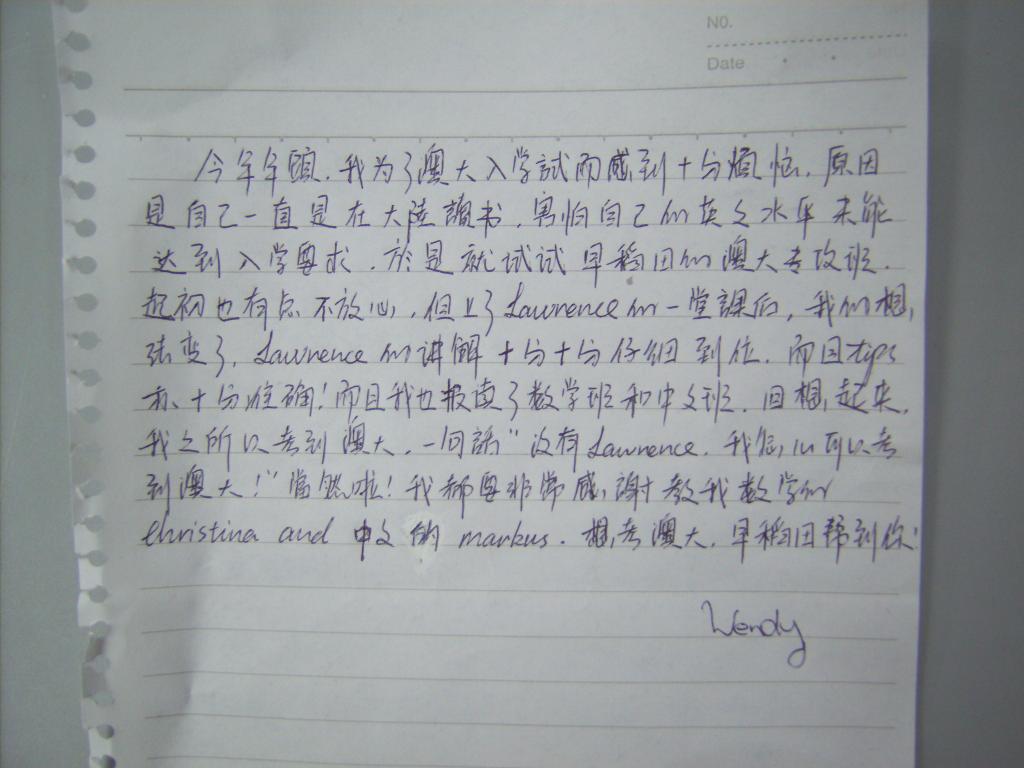 NO.
Date
今年年頭，我为了澳大入学試而感到十分煩恼，原因
是自己一直是在大陸讀书，害怕自己的英文水平未能
达到入学要求，於是就试試早稻田的澳大专攻班，
起初也有点不放心，但上了Lawrence的一堂課后，我的想
法变了，Lawrence的讲解十分十分仔细到位，而且tips
亦十分准确！而且我也报读了数学班和中文班，回想起来，
我之所以考到澳大，一句話“没有Lawrence，我怎么可以考
到澳大！”當然啦！我都要非常感謝教我数学的
Christina and 中文的 markus. 想考澳大，早稻田帮到你！
Wendy